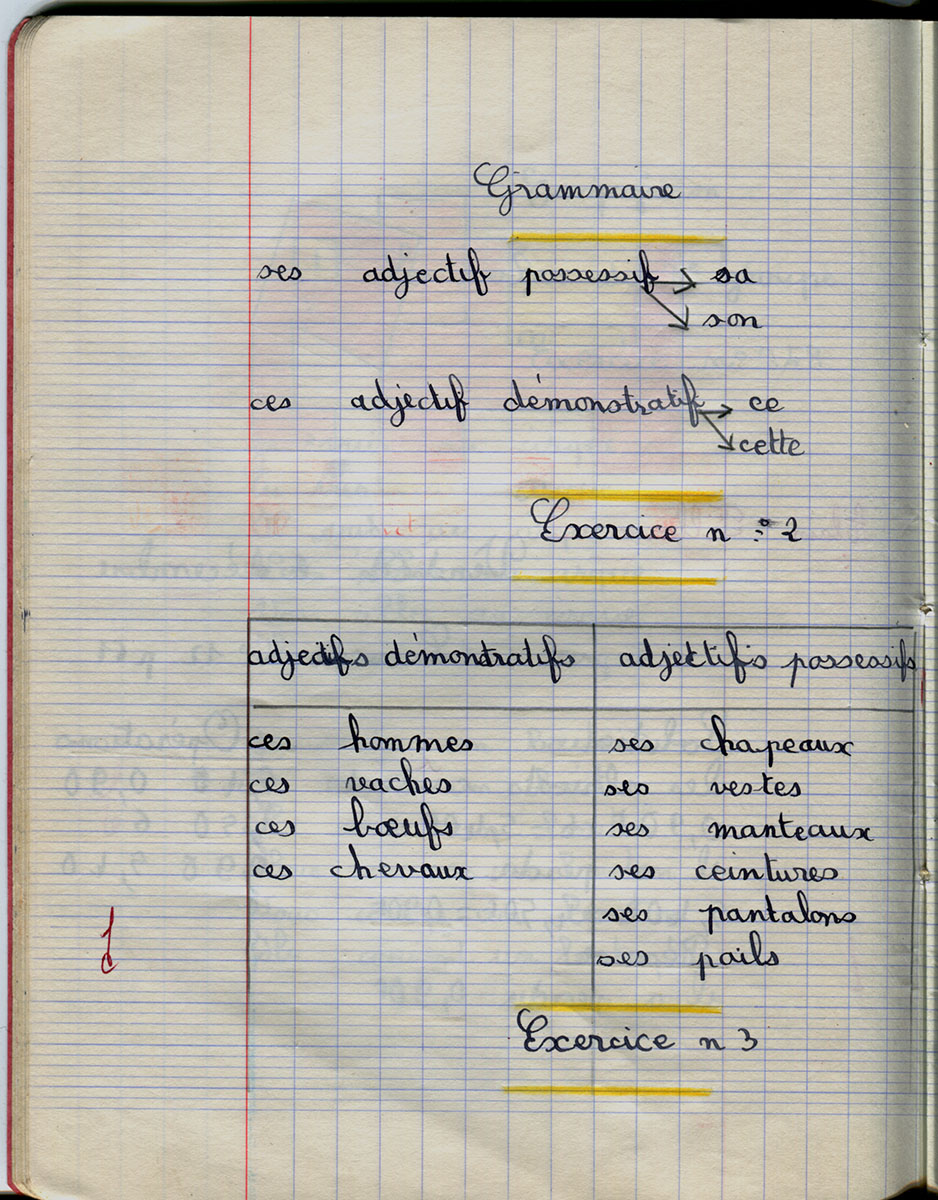 Grammaire
ses adjectif possessif → sa
↘ son
ces adjectif démonstratif → ce
↘ cette
Exercice n : 2
adjectifs démontratifs adjectifs possessifs
ces hommes ses chapeaux
ces vaches ses vestes
ces bœufs ses manteaux
ces chevaux ses ceintures
ses pantalons
ses pails
Exercice n 3